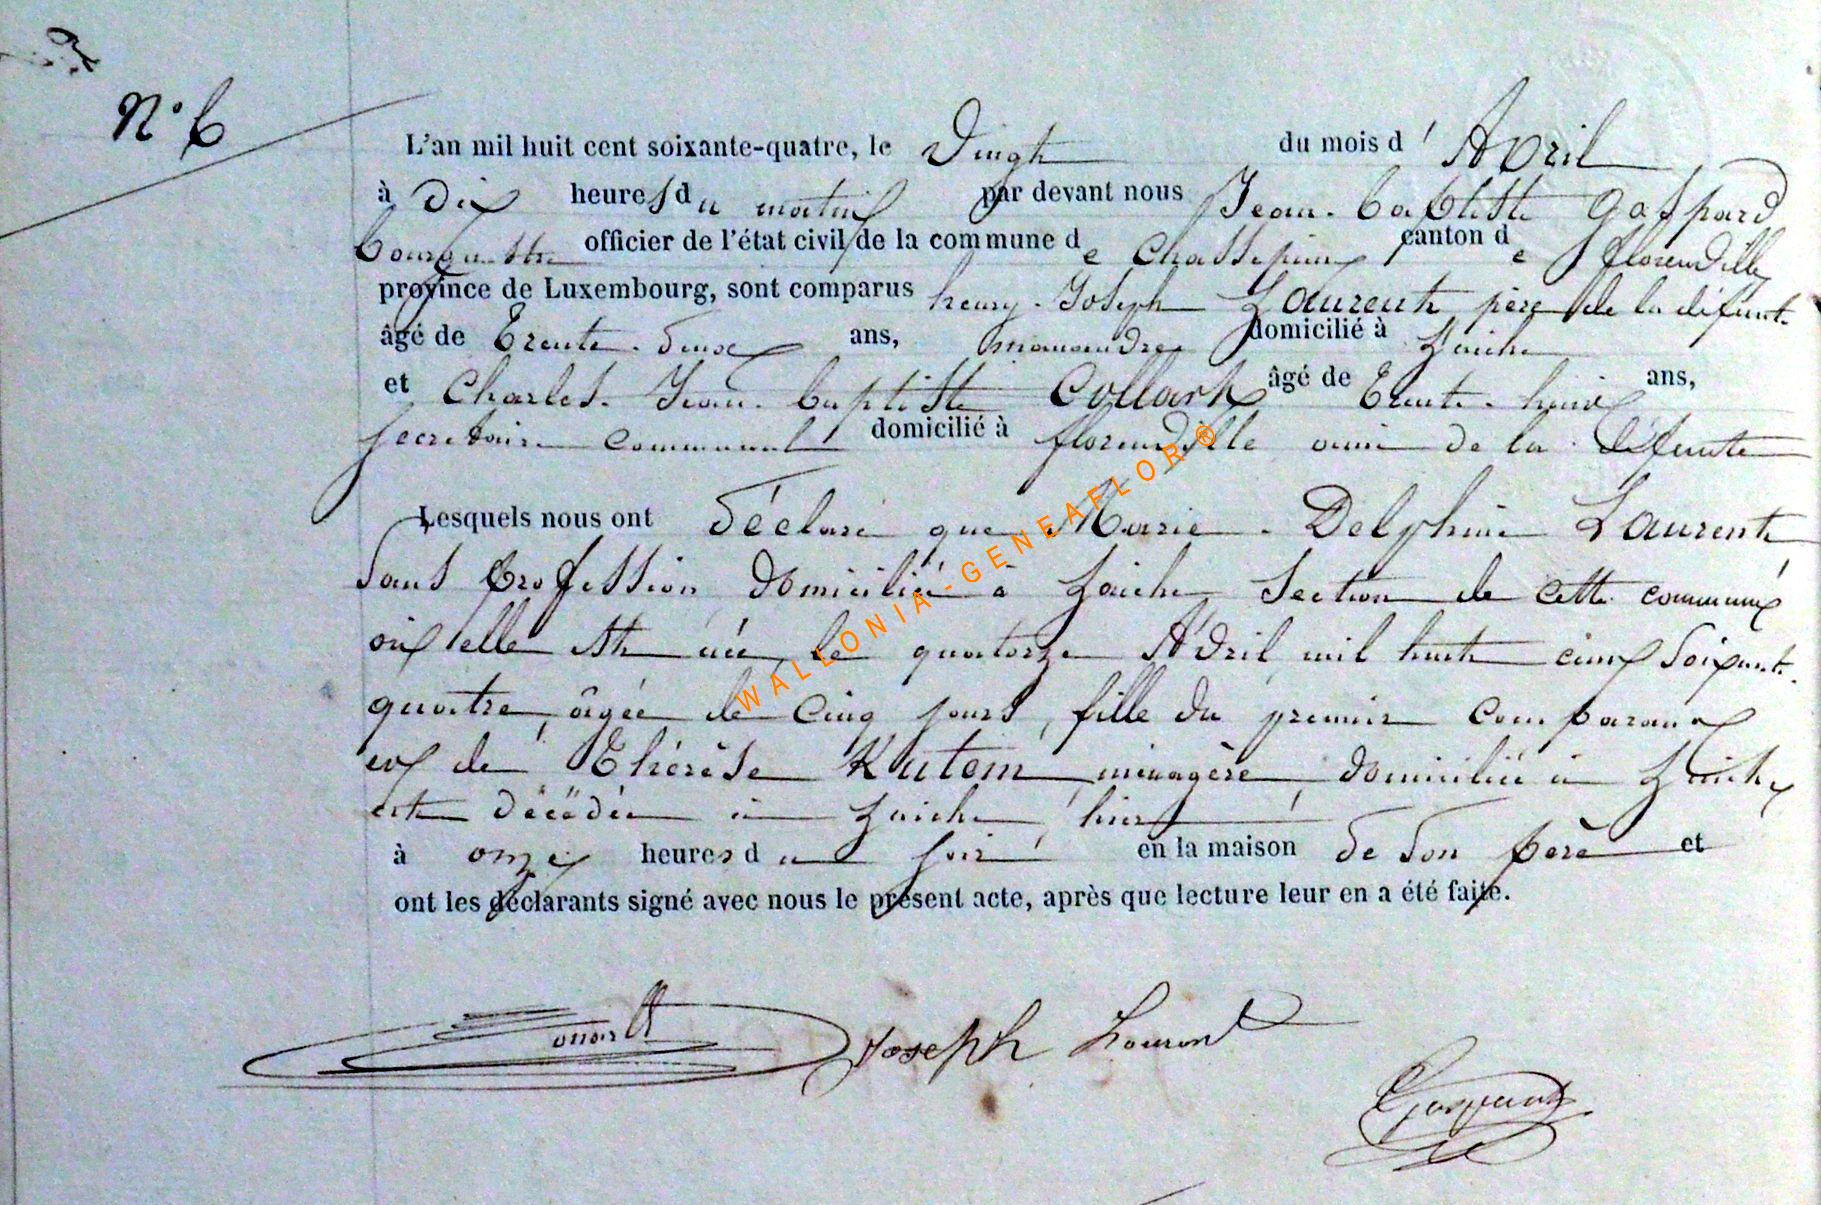 N° 6
L'an mil huit cent soixante-quatre, le Vingt du mois d' Avril
à Dix heures du matin par devant nous Jean-baptiste Gaspard
bourgmestre officier de l'état civil de la commune de Chassepierre canton de florenville
province de Luxembourg, sont comparus henry-Joseph Laurent père de la défunte
âgé de Trente-deux ans, manoeuvre domicilié à Laiche
et Charles-Jean-baptiste Collart âgé de Trente-huit ans,
secrétaire communal domicilié à florenville ami de la défunte
Lesquels nous ont déclaré que Marie-Delphine Laurent
sans profession domiciliée à Laiche section de cette commune
où elle est née, le quatorze Avril mil huit cent soixante-
quatre, âgée de cinq jours, fille du premier comparant
et de Thérèse Kutem, ménagère, domiciliée à Laiche
est décédée à Laiche, hier
à onze heures du soir en la maison de son père et
ont les déclarants signé avec nous le présent acte, après que lecture leur en a été faite.
Joseph Lauront
Gaspard
WALLONIA-GENEAFLOR®